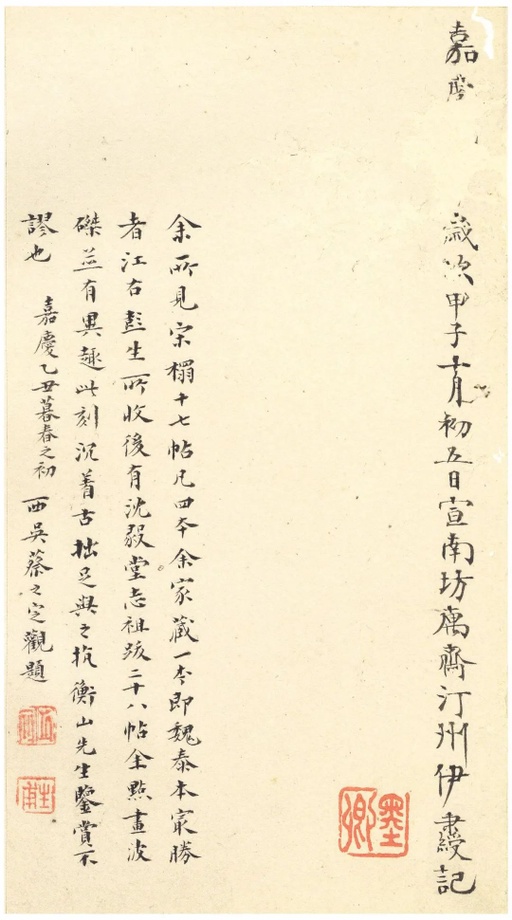 嘉慶歲次甲子十月初五日宣南坊寓齋汀州伊秉綬記
墨卿
余所見宋榻十七帖凡四本余家藏一本即魏泰本最勝
者江右彭生所收後有沈毅堂志祖跋二十八帖余點畫波
磔並有異趣此刻沉着古拙足與之抗衡山先生鑒賞不
謬也 嘉慶乙丑暮春之初 西吳蔡之定觀題
生甫